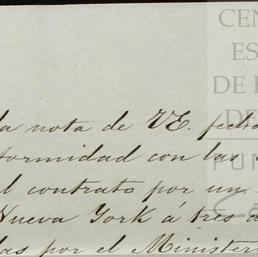 CEN
ES
DE
DE
FUN
la nota de VE. fech
formidad con las
l contrato por un
Nueva York á tres d
las por el Minister